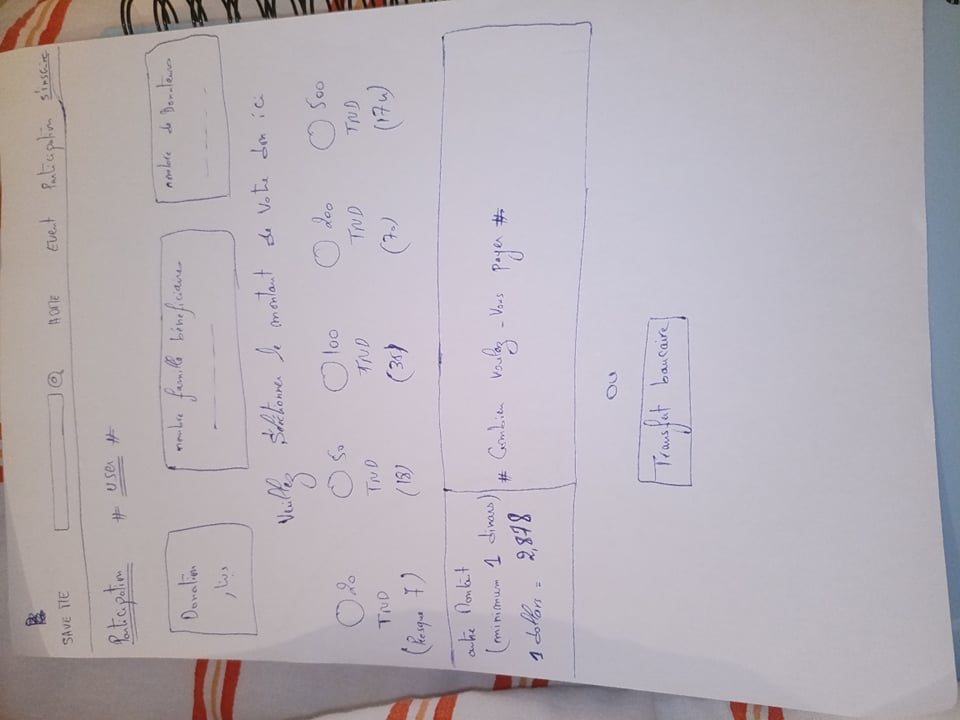 SAVE ME HOME Event Participation s'inscrire
Participation # user #
Donation
دينار
nombre famille bénéficiaires
nombre de Donateurs
Veuillez Séléctionner le montant de votre don ici
20 50 100 200 500
TND TND TND TND TND
(Presque 7) (18) (35) (70) (174)
autre Montât
(minimum 1 dinars)
1 dollars = 2,878
# Combien voulez-vous payer #
OU
Transfert bancaire